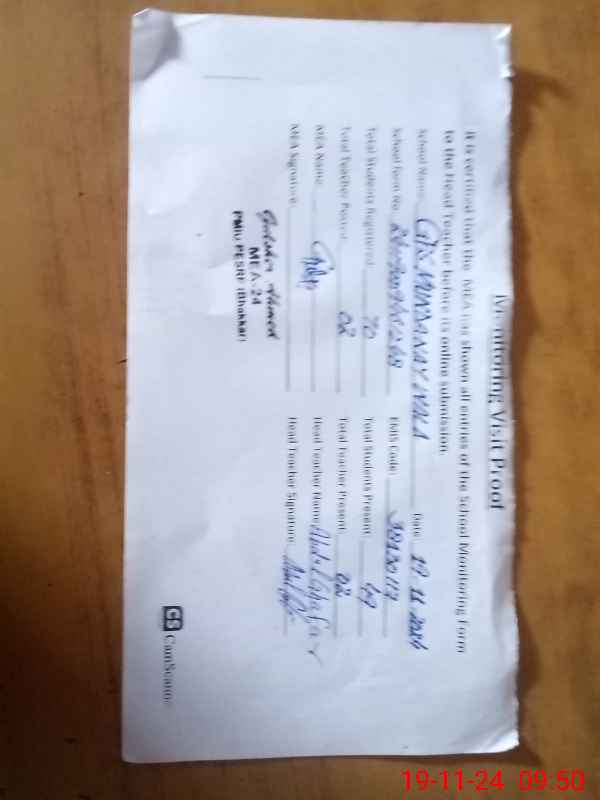 Monitoring Visit Proof
It is certified that the MEA has shown all entries of the School Monitoring Form
to the Head Teacher before its online submission.
School Name: Date: 19-11-2024
School Form No. EMIS Code:
Total Students Registered: 70 Total Students Present: 69
Total Teacher Posted: 02 Total Teacher Present: 02
MEA Name: Head Teacher Name: Abdul Ghafar
MEA Signature: Head Teacher Signature:
Ahmed
MEA-24
PMIU PESRP (Bhakkar)
CS CamScanne
19-11-24 09:50